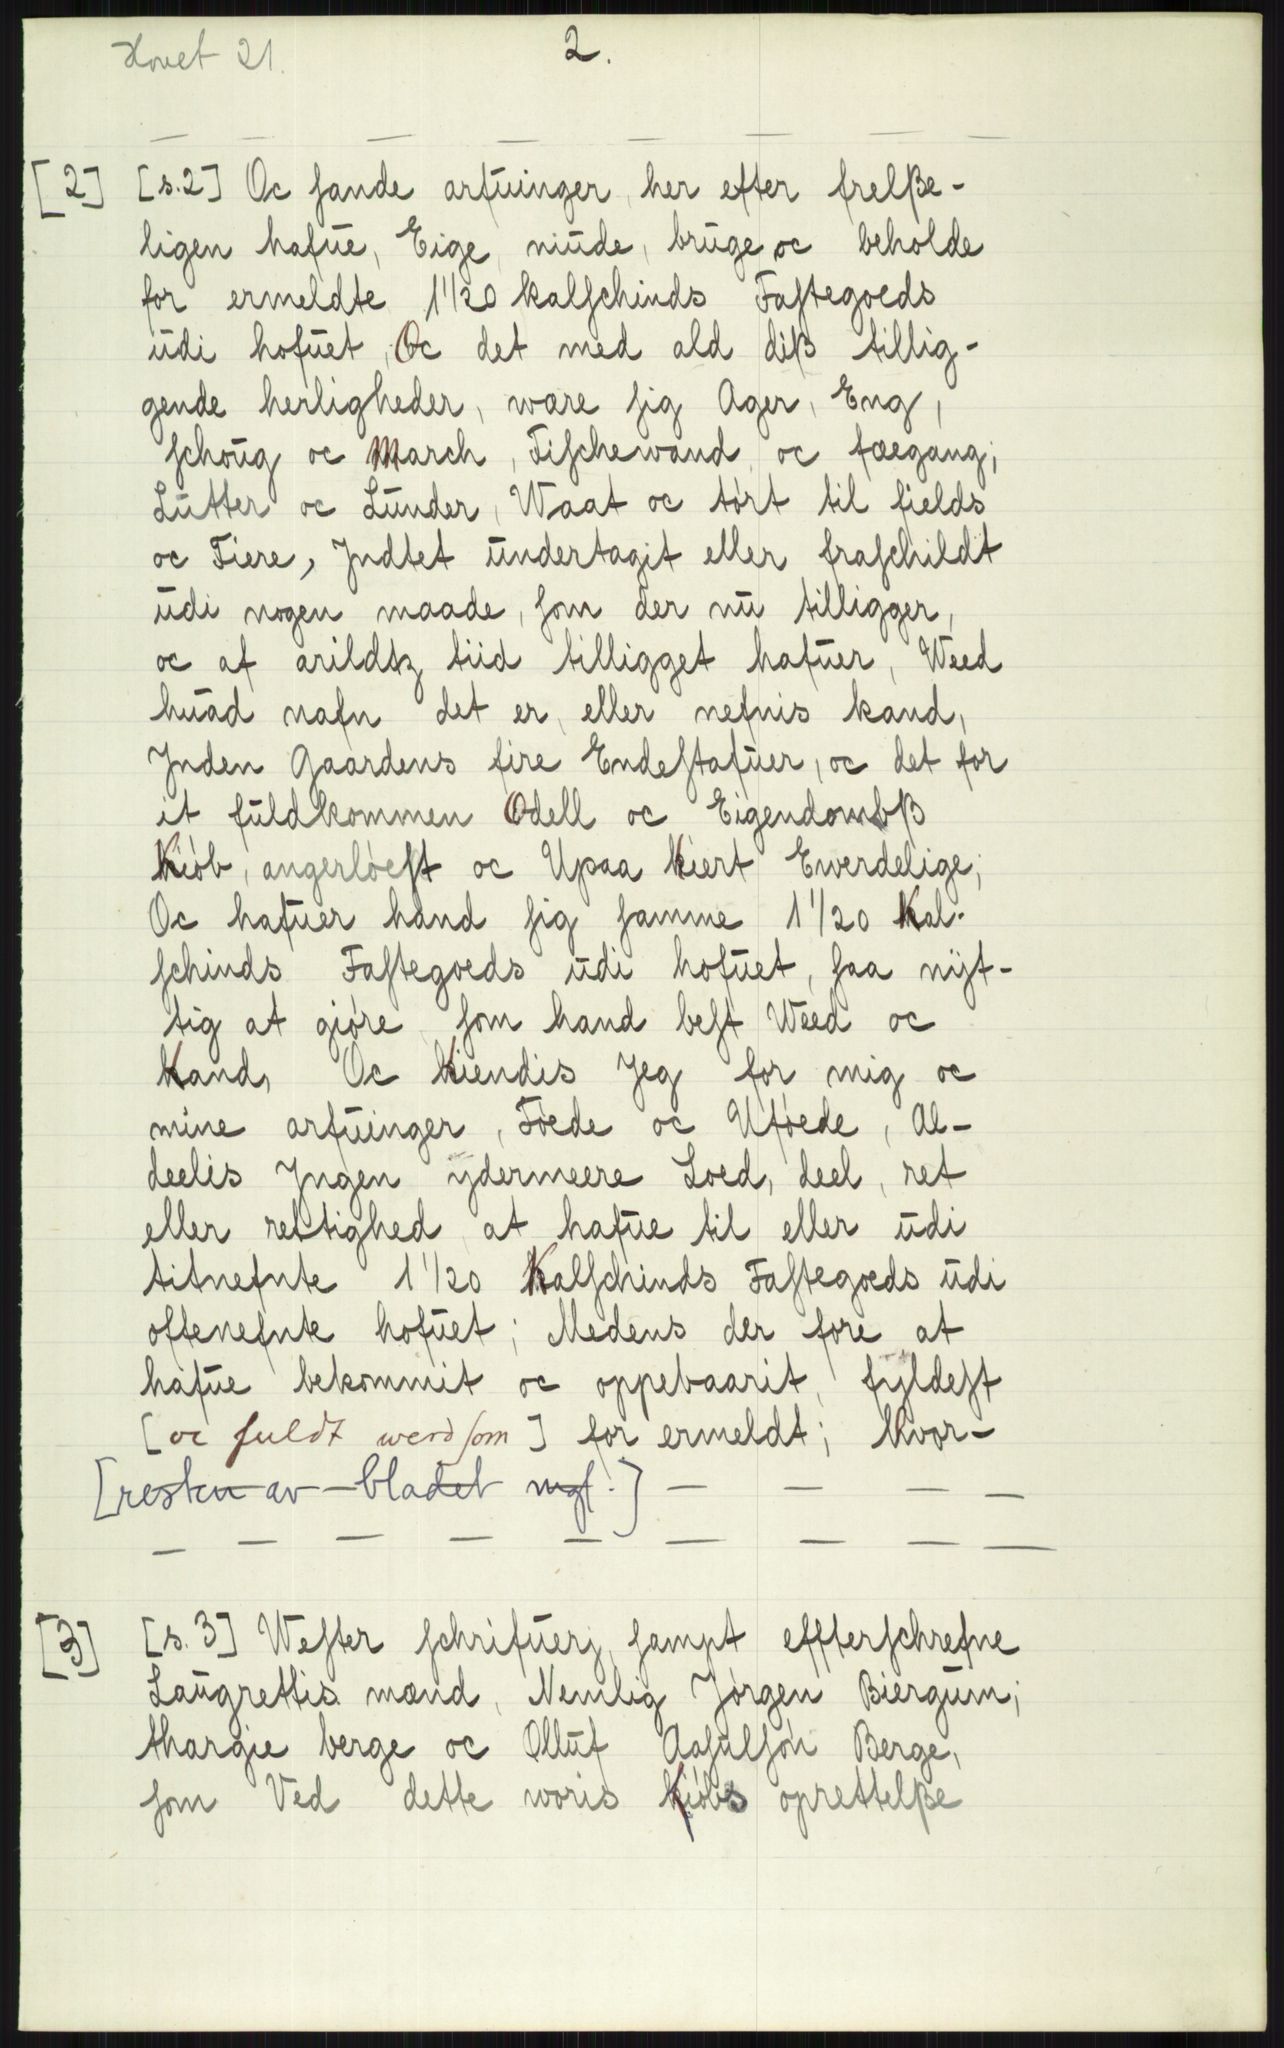 Hovet 21.
2.
[2] [s.2] Oc sande arfuinger, her efter frelsße-
ligen hafue, Eige, niude, bruge oc beholde
for ermeldte 1 1/20 kalschinds Fastegoeds
udi hofuet, Oc det med ald diß tillig-
gende herligheder, wære sig Ager, Eng,
schoug oc March, Fischewand oc fæegang,
Lutter oc Lunder, Waat oc tørt til fields
oc Fiere, Jndtet undertagit eller fraschildt
udi nogen maade, som der nu tilligger,
oc af arildtz tiid tilligget hafuer, Weed
huad nafn det er, eller nefnis kand,
Jnden Gaardens fire Endestafuer, oc det for
it fuldkommen Odell oc Eigendombß
Kiøb, angerløest oc Upaa Kiert Ewerdelige;
Oc hafuer hand sig samme 1 1/20 Kal-
schinds Fastegoeds udi hofuet, saa nyt-
tig at giøre som hand best Weed oc
Kand, Oc Kiendis Jeg for mig oc
mine arfuinger, Føede oc Uføede, Al-
deelis Jngen ydermeere Loed, deel, ret
eller rettighed at hafue til eller udi
titnefnte 1 1/20 Kalschinds Fastegoeds udi
oftenefnte hofuet; Medens der fore at
hafue bekommit oc oppebaarit, fyldest
[oc fuldt werd som] for ermeldt; hvor-
[resten av bladet mgl.] — — — —
— — — — — — — — —
[3] [s.3] Wester schrifuer, sampt effterschrefne
Laugrettis mænd, Nemlig Jørgen Biergum;
thargie berge oc Olluf Aasulsøn Berge,
som Ved dette woris Kiøbs oprettelße